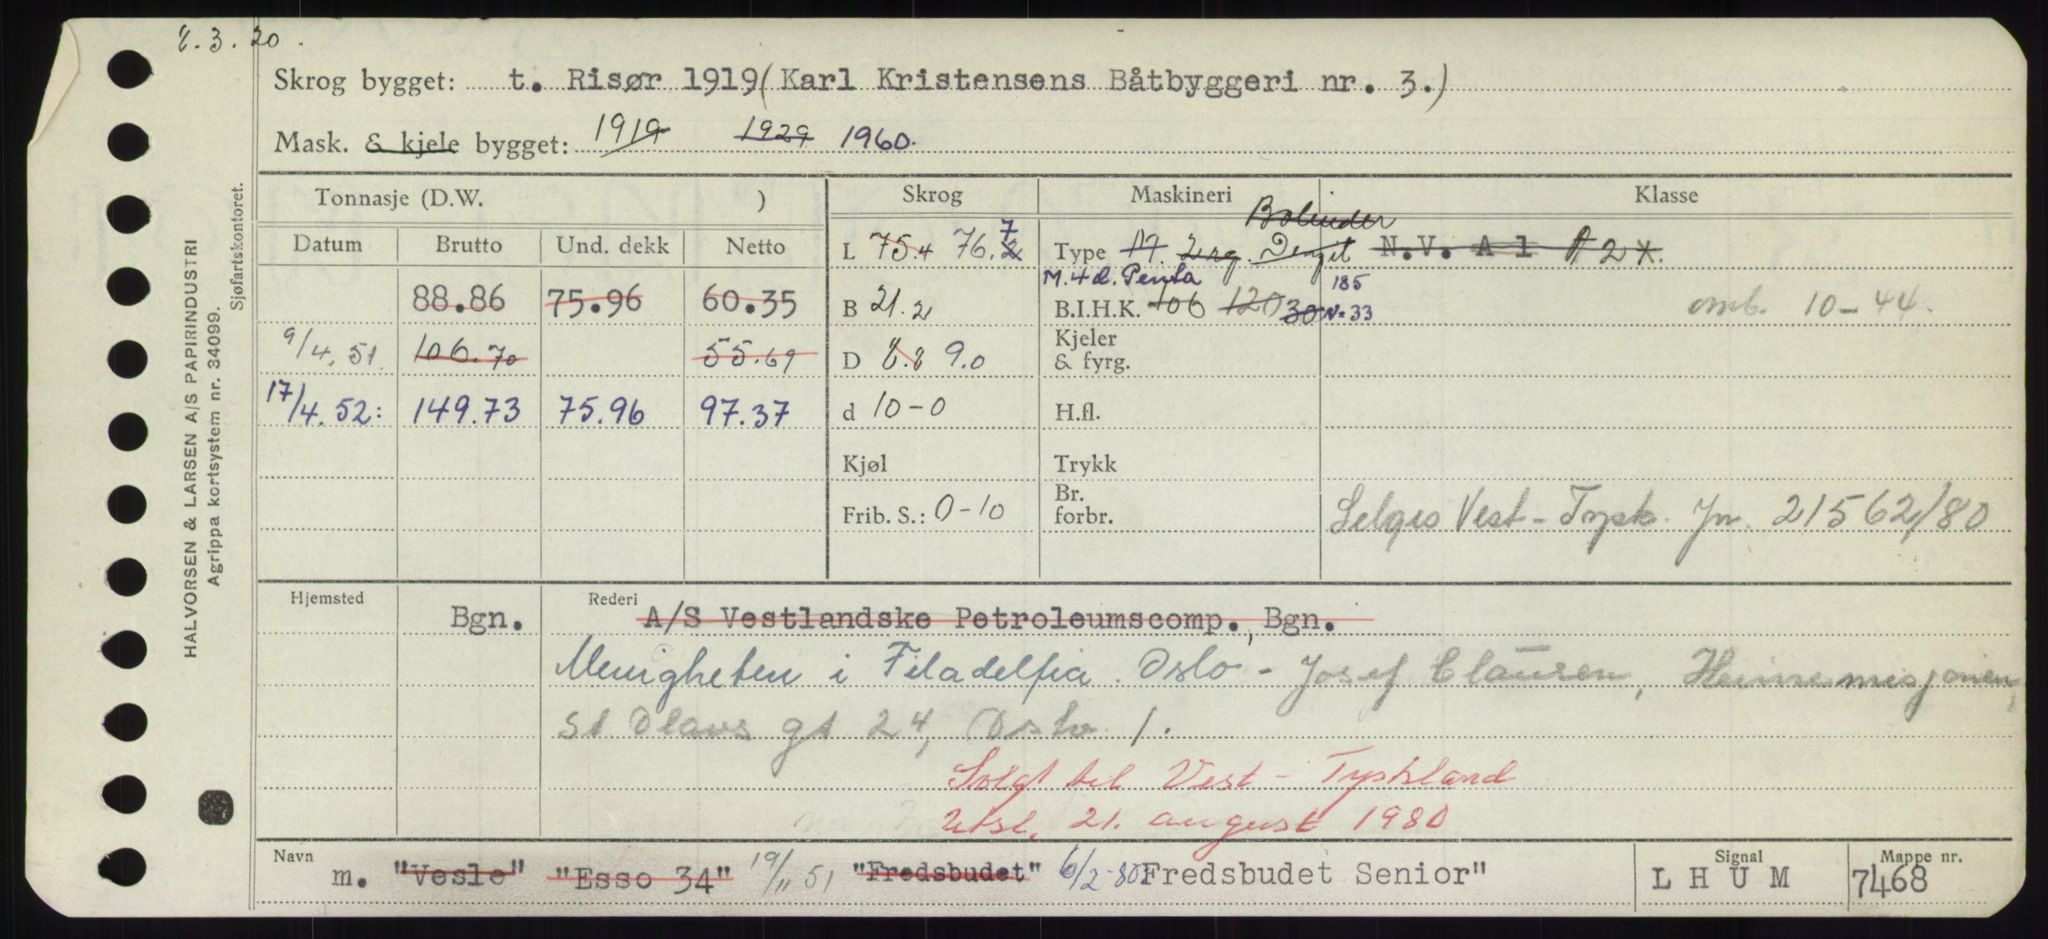 8.3.20.
Skrog bygget: t. Risør 1919 (Karl Kristensens Båtbyggeri nr. 3.)
Mask. & kjele bygget: 1919 1929 1960.
Tonnasje (D.W. ) Skrog Maskineri Klasse
Datum Brutto Und. dekk Netto
88.86 75.96 60.35
9/4.51. 106.70 55.69
17/4.52: 149.73 75.96 97.37
L 75.4 76.2 7
B 21.2
D 8.8 9.0
d 10-0
Kjøl
Frib. S.: 0-10
Bolinder
Type M. 2 sg.
M. 4 d. Penta 185
B.I.H.K. 106 120 30 N=33
Kjeler
& fyrg.
H.fl.
Trykk
Br.
forbr.
N.V. A 1 A 2 *.
omb. 10-44.
Selges Vest-Tysk. Jn. 21562/80
Hjemsted Rederi
Bgn. A/S Vestlandske Petroleumscomp., Bgn.
Menigheten i Filadelfia. Oslo - Josef Clausen, Heimemisjonen,
St Olavs gt 24, Oslo 1.
Solgt til Vest-Tyskland
Utsl. 21. august 1980
Navn Signal Mappe nr.
m. "Vesle" "Esso 34" 19/11 51 "Fredsbudet" 6/2-80 "Fredsbudet Senior" L H U M 7468
HALVORSEN & LARSEN A/S PAPIRINDUSTRI
Agrippa kortsystem nr. 34099.
Sjøfartskontoret.